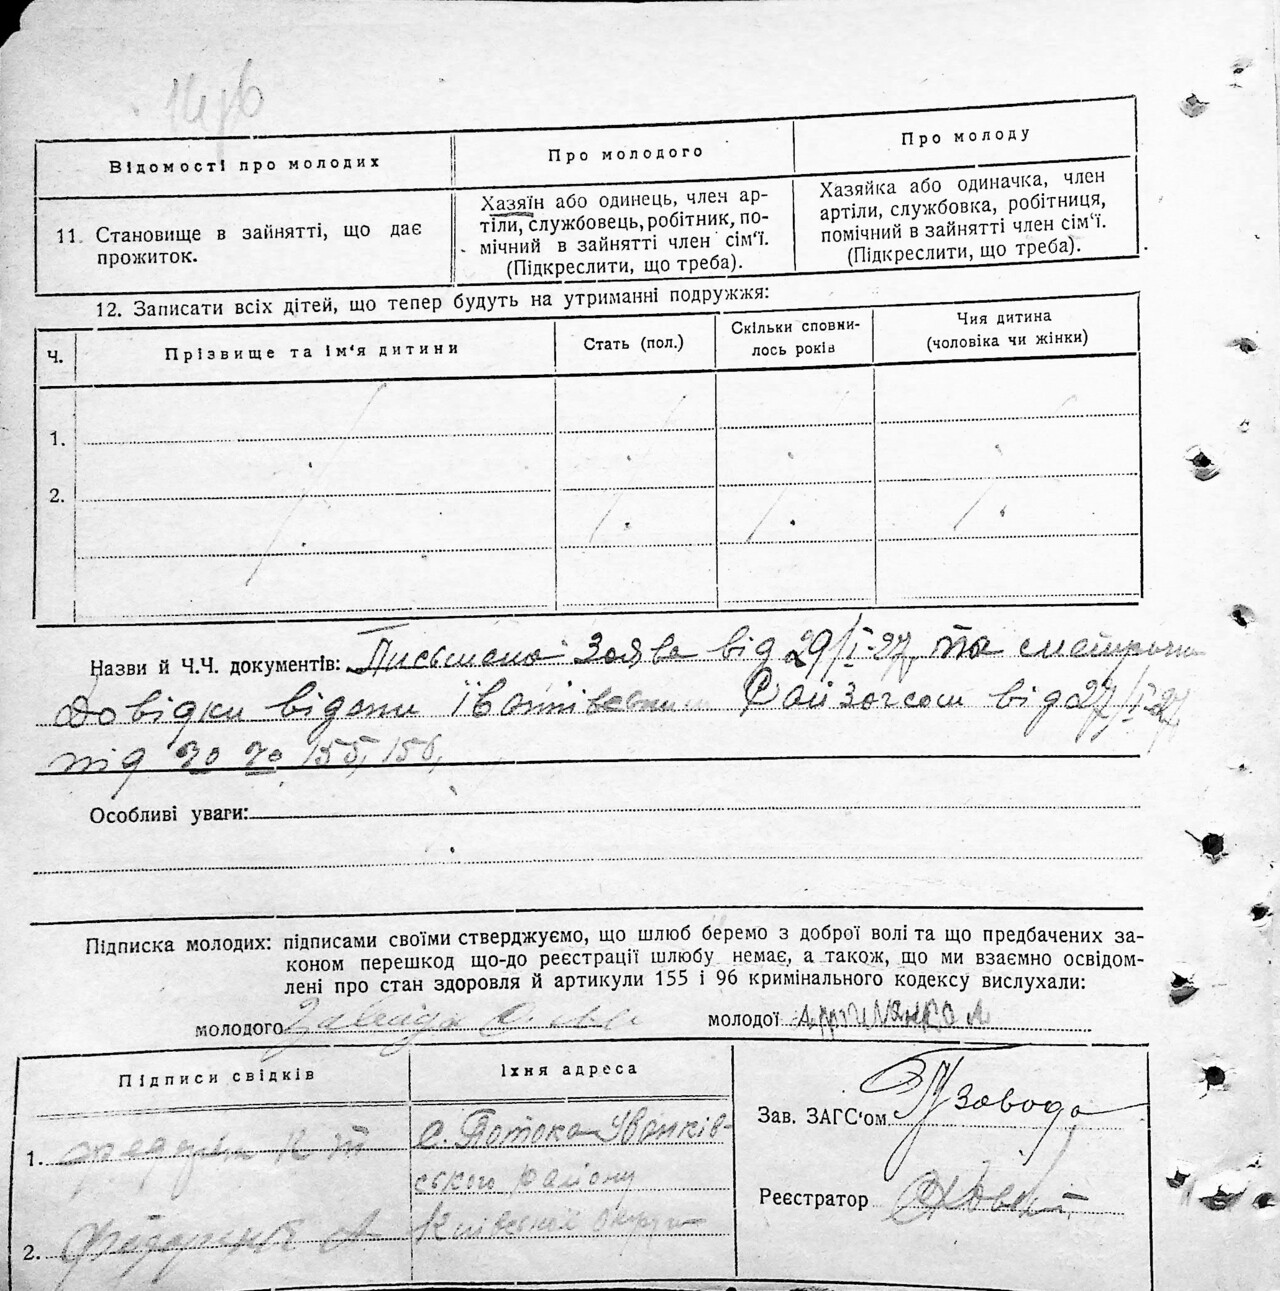 Відомості про молодих
Про молодого
Про молоду
11. Становище в зайнятті, що дає
прожиток.
Хазяїн або одинець, член ар-
тіли, службовець, робітник, по-
мічний в зайнятті член сім'ї.
(Підкреслити, що треба).
Хазяйка або одиначка, член
артіли, службовка, робітниця,
помічний в зайнятті член сім'ї.
(Підкреслити, що треба).
12. Записати всіх дітей, що тепер будуть на утриманні подружжя:
Ч.
Прізвище та ім'я дитини
Стать (пол.)
Скільки сповни-
лось років
Чия дитина
(чоловіка чи жінки)
1.
2.
Назви й Ч.Ч. документів: Письмена заява від 29/I-27, та
Довідки видани Райзагсом від 27/I-27
під № № 155, 156,
Особливі уваги:
Підписка молодих: підписами своїми стверджуємо, що шлюб беремо з доброї волі та що предбачених за-
коном перешкод що-до реєстрації шлюбу немає, а також, що ми взаємно освідом-
лені про стан здоровля й артикули 155 і 96 кримінального кодексу вислухали:
молодого
молодої
Підписи свідків
Їхня адреса
1.
с. Потока Іванків-
ського району
2.
Київської округи
Зав. ЗАГС'ом
Реєстратор